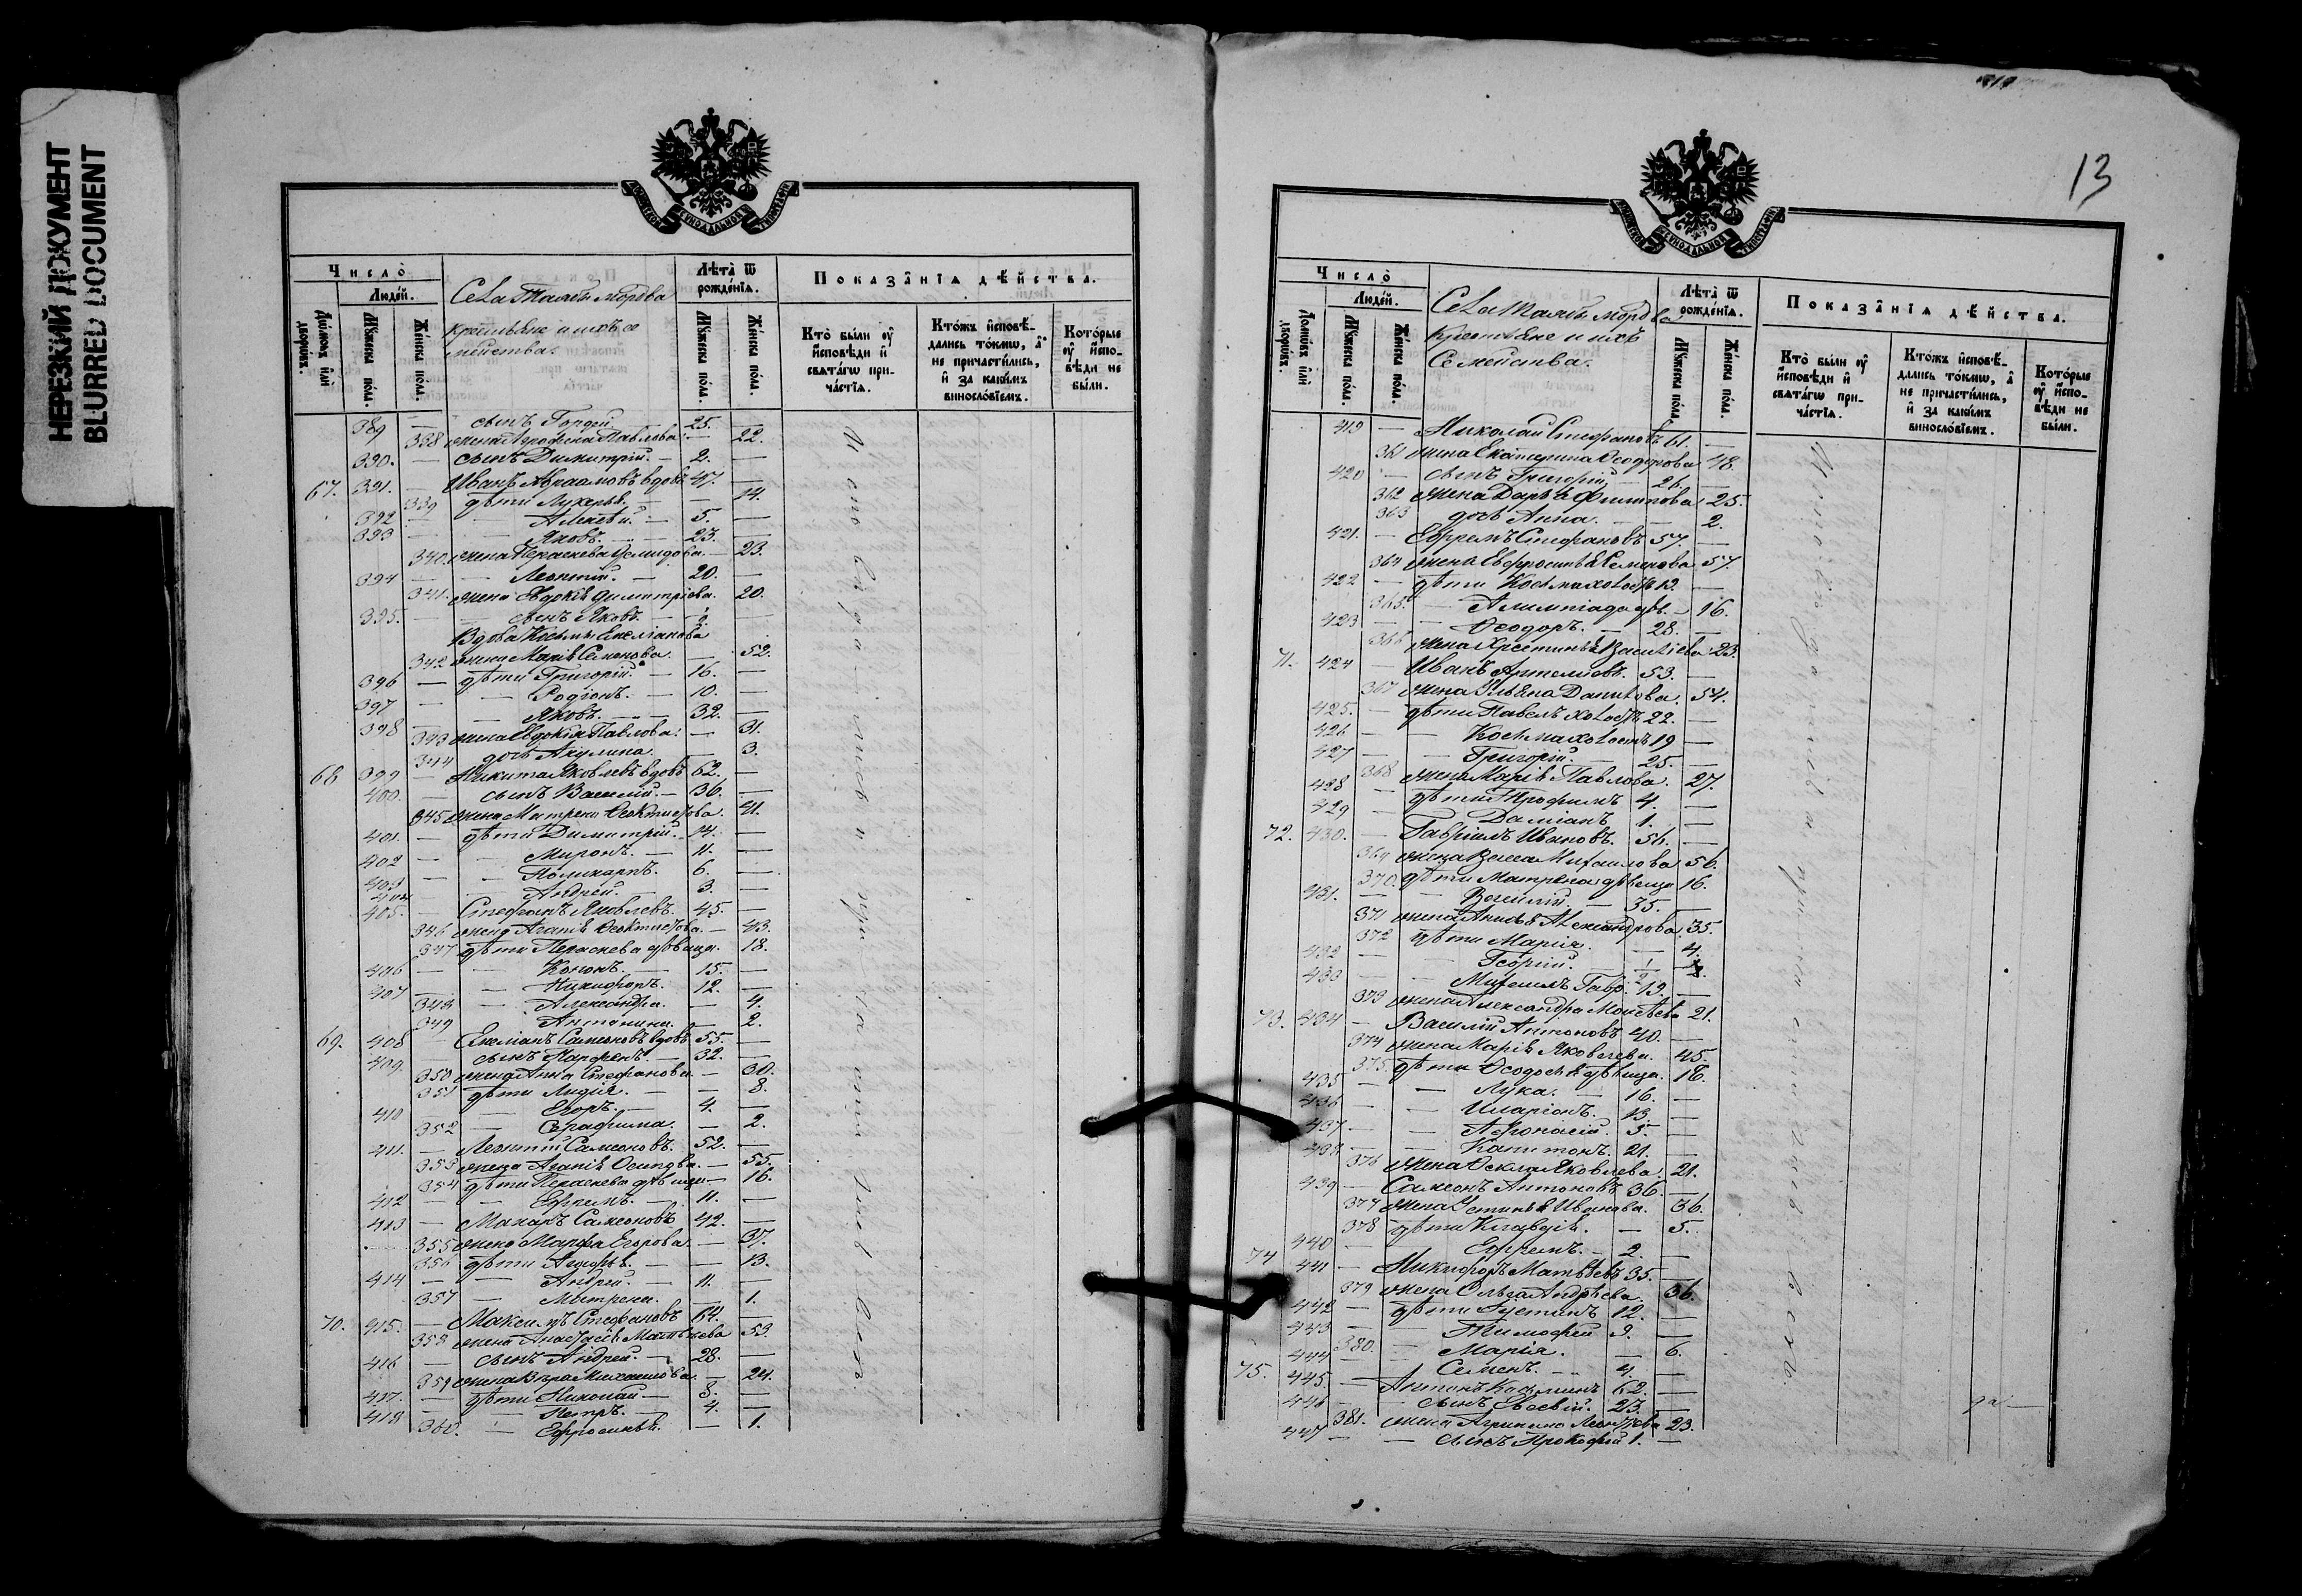 НЕРЕЗКИЙ ДОКУМЕНТ
BLURRED DOCUMENT
Число̀
Людей.
Домѡвъ и҆лѝ дворѡвъ.
Мꙋ́жеска по́ла.
Же́нска по́ла.
Села мордва
крестьяне и ихъ се
мейства.
Лѣта̀ ѿ рожде́нїѧ.
Мꙋ́жеска по́ла.
Же́нска по́ла.
Показа̑нїѧ дѣ́йства.
Кто̀ бы́ли ᲂу҆ и҆сповѣ́ди и҆ свѧта́гѡ при-ча́стїѧ.
Кто́жъ и҆сповѣ́-дались то́кмѡ, а҆ не причасти́лись, и҆ за каки́мъ винослѡ́вїемъ.
Кото́рые ᲂу҆ и҆спо-вѣ́ди не бы́ли.
389 — сынъ Гордей 25. —
338 жена Агрофена Павлова — 22.
390. — сынъ Димитрий. — 2. —
67. 391. — Иванъ Авраамовъ вдовъ 47. —
339 дѣти Лукерья. — 14.
392 — Алексѣй. — 5. —
393 — Яковъ. — 23. —
340. жена Параскева Демидова. — 23.
394 — Леонтий. — 20. —
341. жена Евдокія Димитріева. 20.
395. — сынъ Яковъ. —
Вдова Косьмы Емеліанова
342 жена Марія Семенова. — 52.
396 — дѣти Григорій. — 16. —
397 — Родіонъ. — 10. —
398 — Яковъ. — 32. —
343 жена Евдокія Павлова. — 31.
344 дочь Акулина. — 3.
68 399 — Никита Яковлевъ вдовъ 62. —
400. — сынъ Василій. — 36. —
345 жена Матрена Феоктистова. 41.
401. — дѣти Димитрій. 14. —
402 — Миронъ. — 11. —
403 — Поликарпъ. 6. —
404 — Андрей. 3. —
405. Стефанъ Яковлевъ. 45. —
346 жена Агапія Феоктистова. — 43.
347 дѣти Параскева дѣвица. 18.
406 — Кононъ. — 15. —
407 — Никифоръ. 12. —
348 — Александра. — 4.
349 Антонина. — 2.
69. 408 — Емеліанъ Самсоновъ вдовъ 55. —
409. — сынъ Парфенъ. — 32. —
350 жена Анна Стефанова — 30.
351 дѣти Лидія. — 8.
410 — Егоръ. — 4. —
352 — Серафима. — 2.
411. — Леонтій Самсоновъ. 52. —
353 жена Агапія Осипова. — 55.
354 дѣти Параскева дѣвица — 16.
412 — Ефремъ. — 11. —
413 — Макаръ Самсоновъ 42. —
355 жена Марфа Егорова. — 37.
356 дѣти — 13.
414 — Андрей. — 11. —
357 — Матрена. — 1.
70. 415. — Максимъ Стефановъ 64. —
358 жена Анастасія Матвѣева 53.
416 — сынъ Андрей. — 28. —
359 жена Вѣра Михаилова. — 24.
417. — дѣти Николай — 8. —
418 — Петръ. — 4. —
360. — Ефросинья. — 1.
13
Число̀
Людей.
Домѡвъ и҆лѝ дворѡвъ.
Мꙋ́жеска по́ла.
Же́нска по́ла.
Села мордва
Крестьяне и ихъ
Семейства.
Лѣта̀ ѿ рожде́нїѧ.
Мꙋ́жеска по́ла.
Же́нска по́ла.
Показа̑нїѧ дѣ́йства.
Кто̀ бы́ли ᲂу҆ и҆сповѣ́ди и҆ свѧта́гѡ при-ча́стїѧ.
Кто́жъ и҆сповѣ́-дались то́кмѡ, а҆ не причасти́лись, и҆ за каки́мъ винослѡ́вїемъ.
Кото́рые ᲂу҆ и҆спо-вѣ́ди не бы́ли.
419 — Николай Стефановъ 61. —
361 жена Екатерина Феодорова 48.
420 — сынъ Григорій — 26. —
362 жена Дарья Филипова 25.
363 дочь Анна. — 2.
421. — Ефремъ Стефановъ 57. —
364 жена Евфросинья Семенова 57.
422 — дѣти Косьма холостъ 19. —
365. — Алимпіада дѣв. — 16.
423 — Феодоръ. — 28. —
366 жена Христинья Василіева 23.
71. 424 — Иванъ Артемовъ. 53. —
367 жена Ульяна Данилова. 54.
425. — дѣти Павелъ холостъ 22. —
426 — Косьма холостъ 19 —
427 — Григорій. — 25. —
368 жена Марія Павлова. 27.
428 — дѣти Трофимъ 4. —
429 — Даміанъ 1. —
72. 430. — Гавріилъ Ивановъ. 56. —
369 жена Михаилова 56.
370. дѣти Матрена дѣвица 16.
431. — Василій. — 35. —
371 жена Александрова 35.
372 дѣти Марія. — 4.
432 — Георгій. — 1
433 — Михаилъ Гавр. 19. —
373 жена Александра Моисѣева 21.
73. 434 — Василій Антоновъ 40. —
374 жена Марія Яковлева. 45.
375. дѣти Феодосья дѣвица. 18.
435 — Лука. — 16. —
436 — Иларіонъ. 13. —
437 — Афонасій. 5. —
438 — Капитонъ. 21. —
376 жена Фекла Яковлева 21.
439 — Самсонъ Антоновъ 36. —
377 жена Устинья Иванова. 36.
378 дѣти Клавдія. — 5.
440 — Ефремъ. — 2. —
74 441 — Никифоръ Матвѣевъ 35. —
379 жена Ольга Андрѣева. 36.
442 — дѣти Густинъ 12. —
443 — Тимофей 9. —
380. — Марія. — 6.
444 — Семенъ. — 4. —
75. 445 — Антонъ Косьминъ 62. —
446 — сынъ Евсевій. 23. —
381. жена Агрипина Леонтьева 23.
447 — сынъ Прокофій 1. —